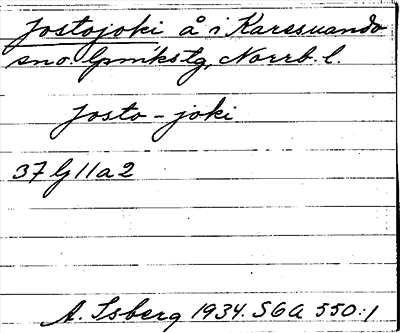 Jostojoki å i Karesuando
sno. lpmkstg, Norrb. l.
Josto-joki
37 G 11 a 2
A. Isberg 1934. SGA 550:1